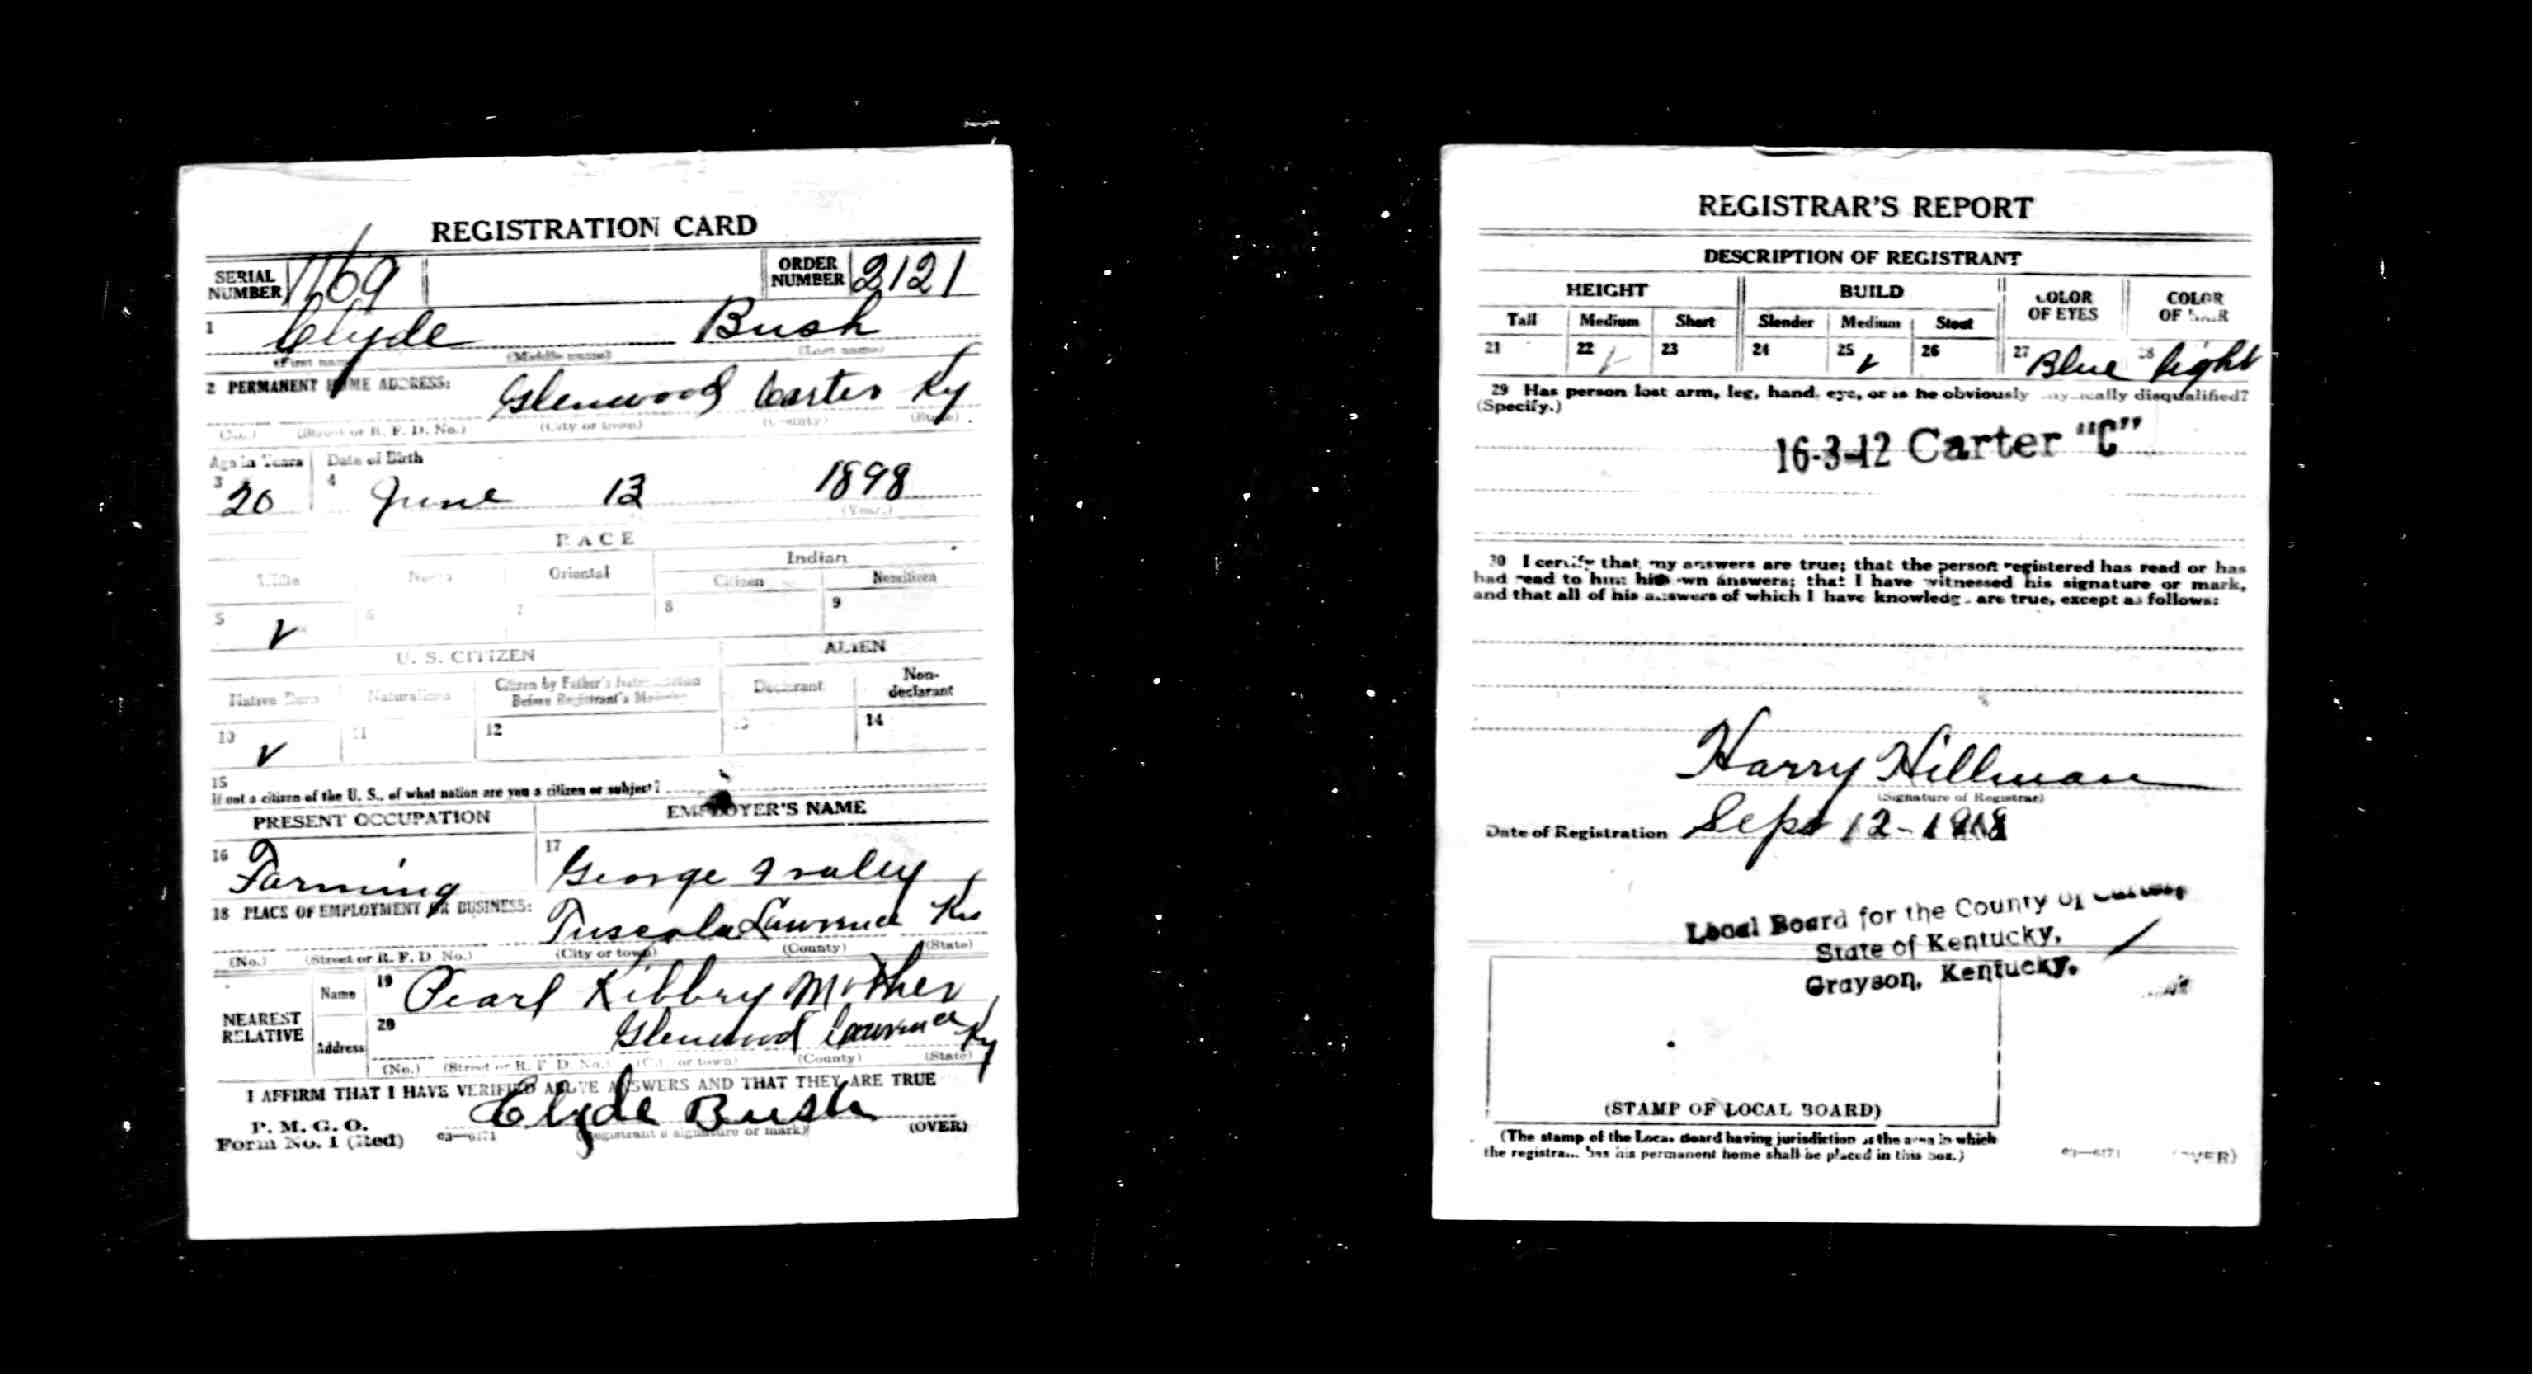 REGISTRATION CARD
SERIAL NUMBER 1169 ORDER NUMBER 2121
1 Clyde Bush
(First name) (Middle name) (Last name)
2 PERMANENT HOME ADDRESS:
Glenwood Carter Ky
(No.) (Street or R. F. D. No.) (City or town) (County) (State)
Age in Years Date of Birth
3 20 4 June 13 1898
(Year.)
RACE
White Negro Oriental Indian
Citizen Noncitizen
5 V 6 7 8 9
U. S. CITIZEN ALIEN
Native Born Naturalized Citizen by Father's Naturalization Before Registrant's Majority Declarant Non-declarant
10 V 11 12 13 14
15
If not a citizen of the U. S., of what nation are you a citizen or subject?
PRESENT OCCUPATION EMPLOYER'S NAME
16 Farming 17 George
18 PLACE OF EMPLOYMENT OR BUSINESS:
Tuscola Lawrence Ky
(No.) (Street or R. F. D. No.) (City or town) (County) (State)
NEAREST RELATIVE
Name 19 Pearl Kibbry Mother
Address 20 Glenwood Lawrence Ky
(No.) (Street or R. F. D. No.) (City or town) (County) (State)
I AFFIRM THAT I HAVE VERIFIED ABOVE ANSWERS AND THAT THEY ARE TRUE
P. M. G. O.
Form No. 1 (Red) 03—6171 Clyde Bush (OVER)
(Registrant's signature or mark)
REGISTRAR'S REPORT
DESCRIPTION OF REGISTRANT
HEIGHT BUILD COLOR OF EYES COLOR OF HAIR
Tall Medium Short Slender Medium Stout
21 22 V 23 24 25 V 26 27 Blue 28 light
29 Has person lost arm, leg, hand, eye, or is he obviously physically disqualified?
(Specify.)
16-3-12 Carter "C"
30 I certify that my answers are true; that the person registered has read or has
had read to him his own answers; that I have witnessed his signature or mark,
and that all of his answers of which I have knowledge are true, except as follows:
Harry Hillman
(Signature of Registrar)
Date of Registration Sept 12-1918
Local Board for the County of Carter,
State of Kentucky,
Grayson, Kentucky.
(STAMP OF LOCAL BOARD)
(The stamp of the Local Board having jurisdiction of the area in which
the registrant has his permanent home shall be placed in this box.)
03—6171 (OVER)